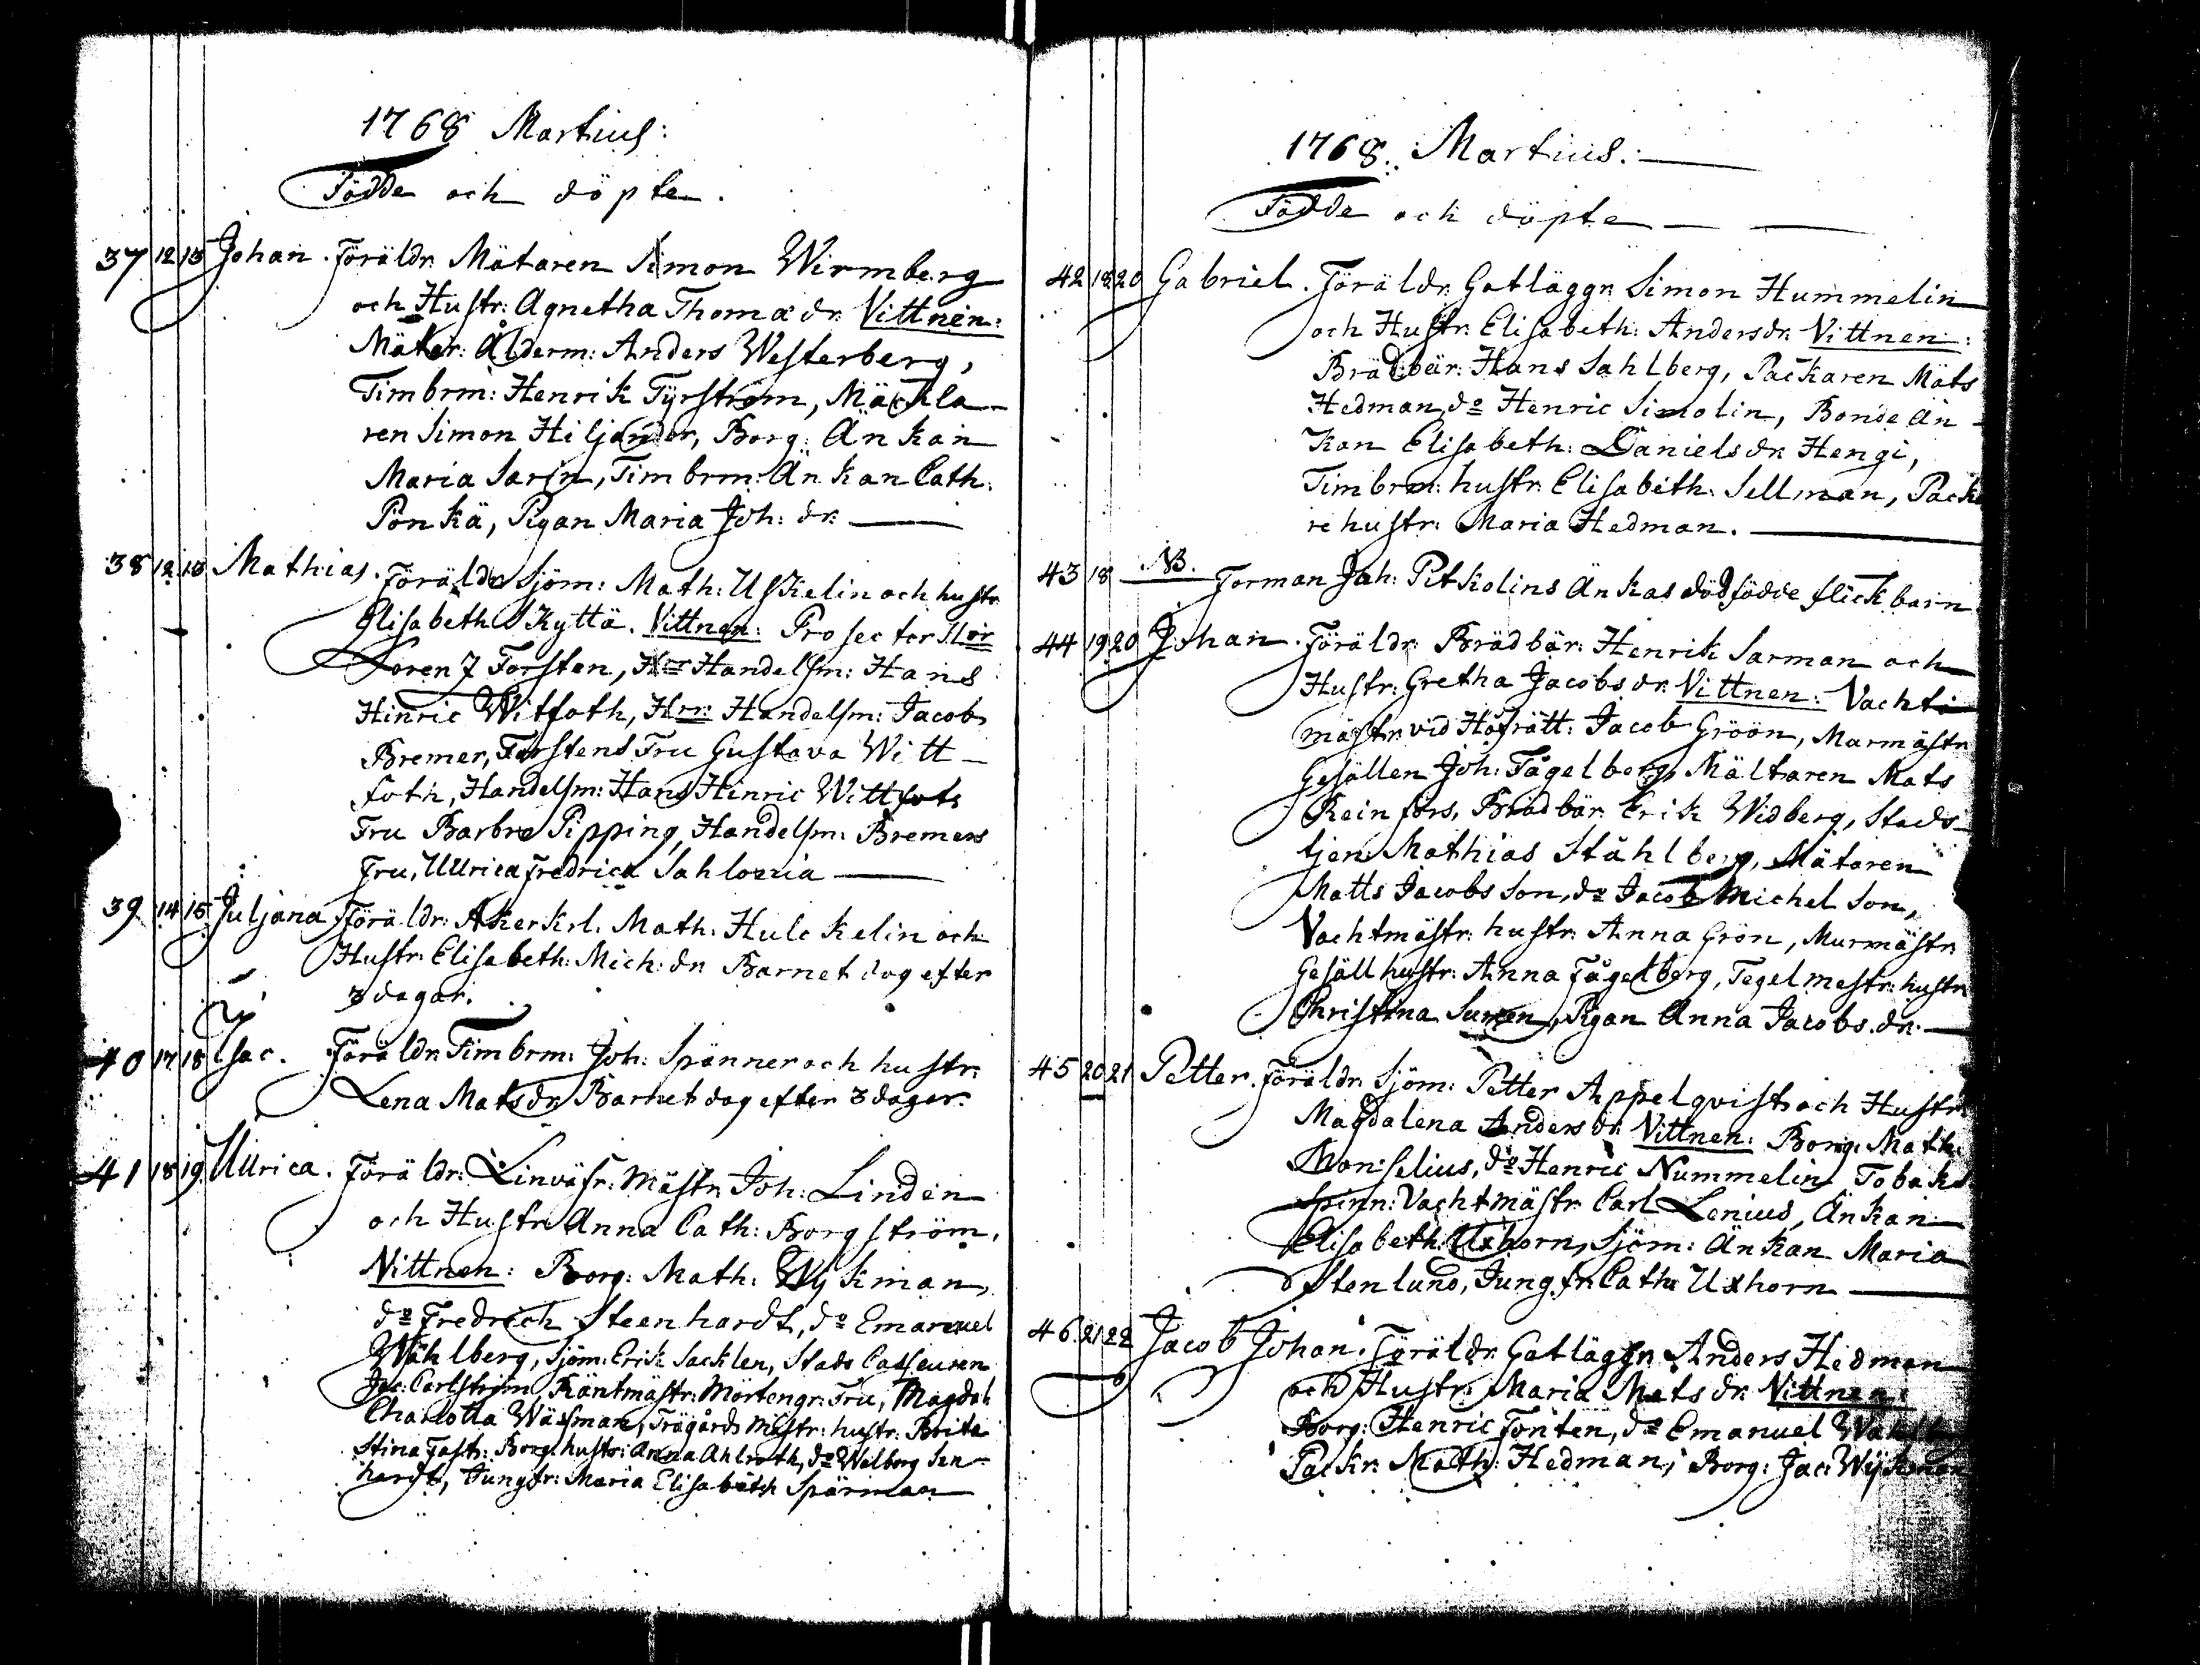 1768 Martius:
Födde och döpte.
37 12 13 Johan. Föräldr. Mätaren Simon Wirmberg
och Hustr: Agnetha Thomæ dr. Vittnen:
Mätar: Ålderm: Anders Westerberg,
Timbrm: Henrik Tyrström, Mäckla-
ren Simon Hiljander, Borg: Änkan
Maria Sarin, Timbrm: Änkan Cath:
Ponkä, Pigan Maria Joh: dr.
38 12 13 Mathias. Föräldr Sjöm: Math: Uskelin och hustr.
Elisabeth Kyttä. Vittnen: Prosector Herr
Loren7 Forsten, Herr Handelsm: Hans
Hinric Witfoth, Herr: Handelsm: Jacob
Bremer, Forstens Fru Gustava Witt-
foth, Handelsm: Hans Hinric Wittfots
Fru Barbro Pipping, Handelsm: Bremers
Fru, Ullrica Fredrica Sahlovia
39 14 15 Juljana Föräldr: Åkerkrl. Math: Hulckelin och
Hustr. Elisabeth: Mich: dr. Barnet dog efter
3 dagar.
40 17 18 Isac. Föräldr. Timbrm: Joh: Spänner och hustr:
Lena Matsdr. Barnet dog efter 3 dagar.
41 18 19 Ullrica. Föräldr: Linväfr: Mästr. Joh: Linden
och Hustr. Anna Cath: Borgström.
Vittnen: Borg: Math: Wykman,
do Fredrich Steenhardt, do Emanuel
Wåhlberg, Sjöm: Erik Sacklen, Stads Casseuren
Jac: Carlström, Räntmästr: Mörtengr: Fru, Magdal:
Charlotta Wäsman, Trägårds Mästr: hustr: Brita
Stina Fast: Borg: hustr: Anna Ahlroth, do Walborg Sten-
hardt, Jungfr: Maria Elisabeth Spärman
1768. Martius:
Födde och döpte
42 18 20 Gabriel. Föräldr. Gatläggr. Simon Hummelin
och Hustr. Elisabeth: Andersdr. Vittnen:
Brädbär: Hans Sahlberg, Packaren Mäts
Hedman, do Henric Simolin, Bonde Än-
kan Elisabeth: Danielsdr. Hengi,
Timbrm: hustr. Elisabeth: Sellman, Packa
re hustr: Maria Hedman.
43 18 NB. Forman Joh: Pitkolins Änkas dödfödde flickbarn
44 19 20 Johan. Föräldr. Brädbär: Henrik Sarman och
Hustr: Gretha Jacobsdr. Vittnen: Vacht
mästr. vid Hofrätt: Jacob Gröön, Murmästr.
Gesällen Joh: Fågelberg, Mältaren Mats
Reinfors, Brädbär. Erik Widberg, Stads-
tjen: Mathias Ståhlberg, Mätaren
Matts Jacobs son, do Jacob Michel son,
Vachtmästr: hustr: Anna Grön, Murmästr.
Gesäll hustr: Anna Fågelberg, Tegelmestr: hustr.
Christina Suren, Pigan Anna Jacobs dr.
45 20 21 Petter. Föräldr. Sjöm: Petter Appelqvist och Hustr.
Magdalena Andersdr. Vittnen: Borg: Math:
Monselius, do Henric Nummelin, Tobaks
Spinn: Vachtmästr. Carl Lenius, Änkan
Elisabeth: Uxhorn, Sjöm: Änkan Maria
Stenlund, Jungfr. Cath: Uxhorn
46 21 22 Jacob Johan. Föräldr. Gatläggr. Anders Hedman
och Hustr: Maria Matsdr. Vittnen:
Borg: Henric Tönten, do Emanuel
Packr. Math: Hedman, Borg: Jac: Wykman